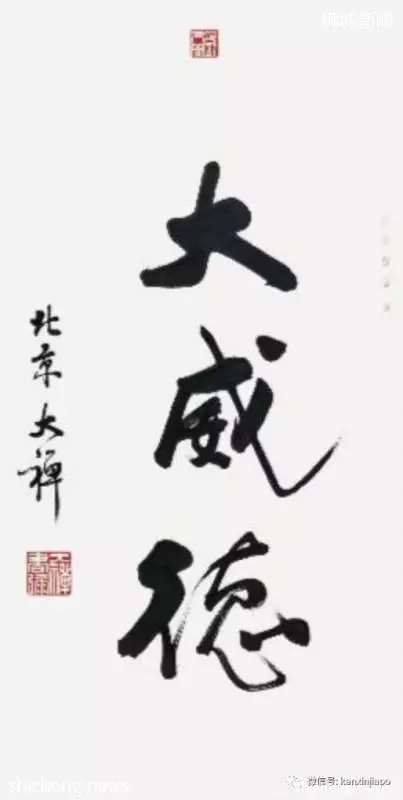 狮城新闻
大威德
北京大禅
微信号: kanxinjiapo
shicheng.news